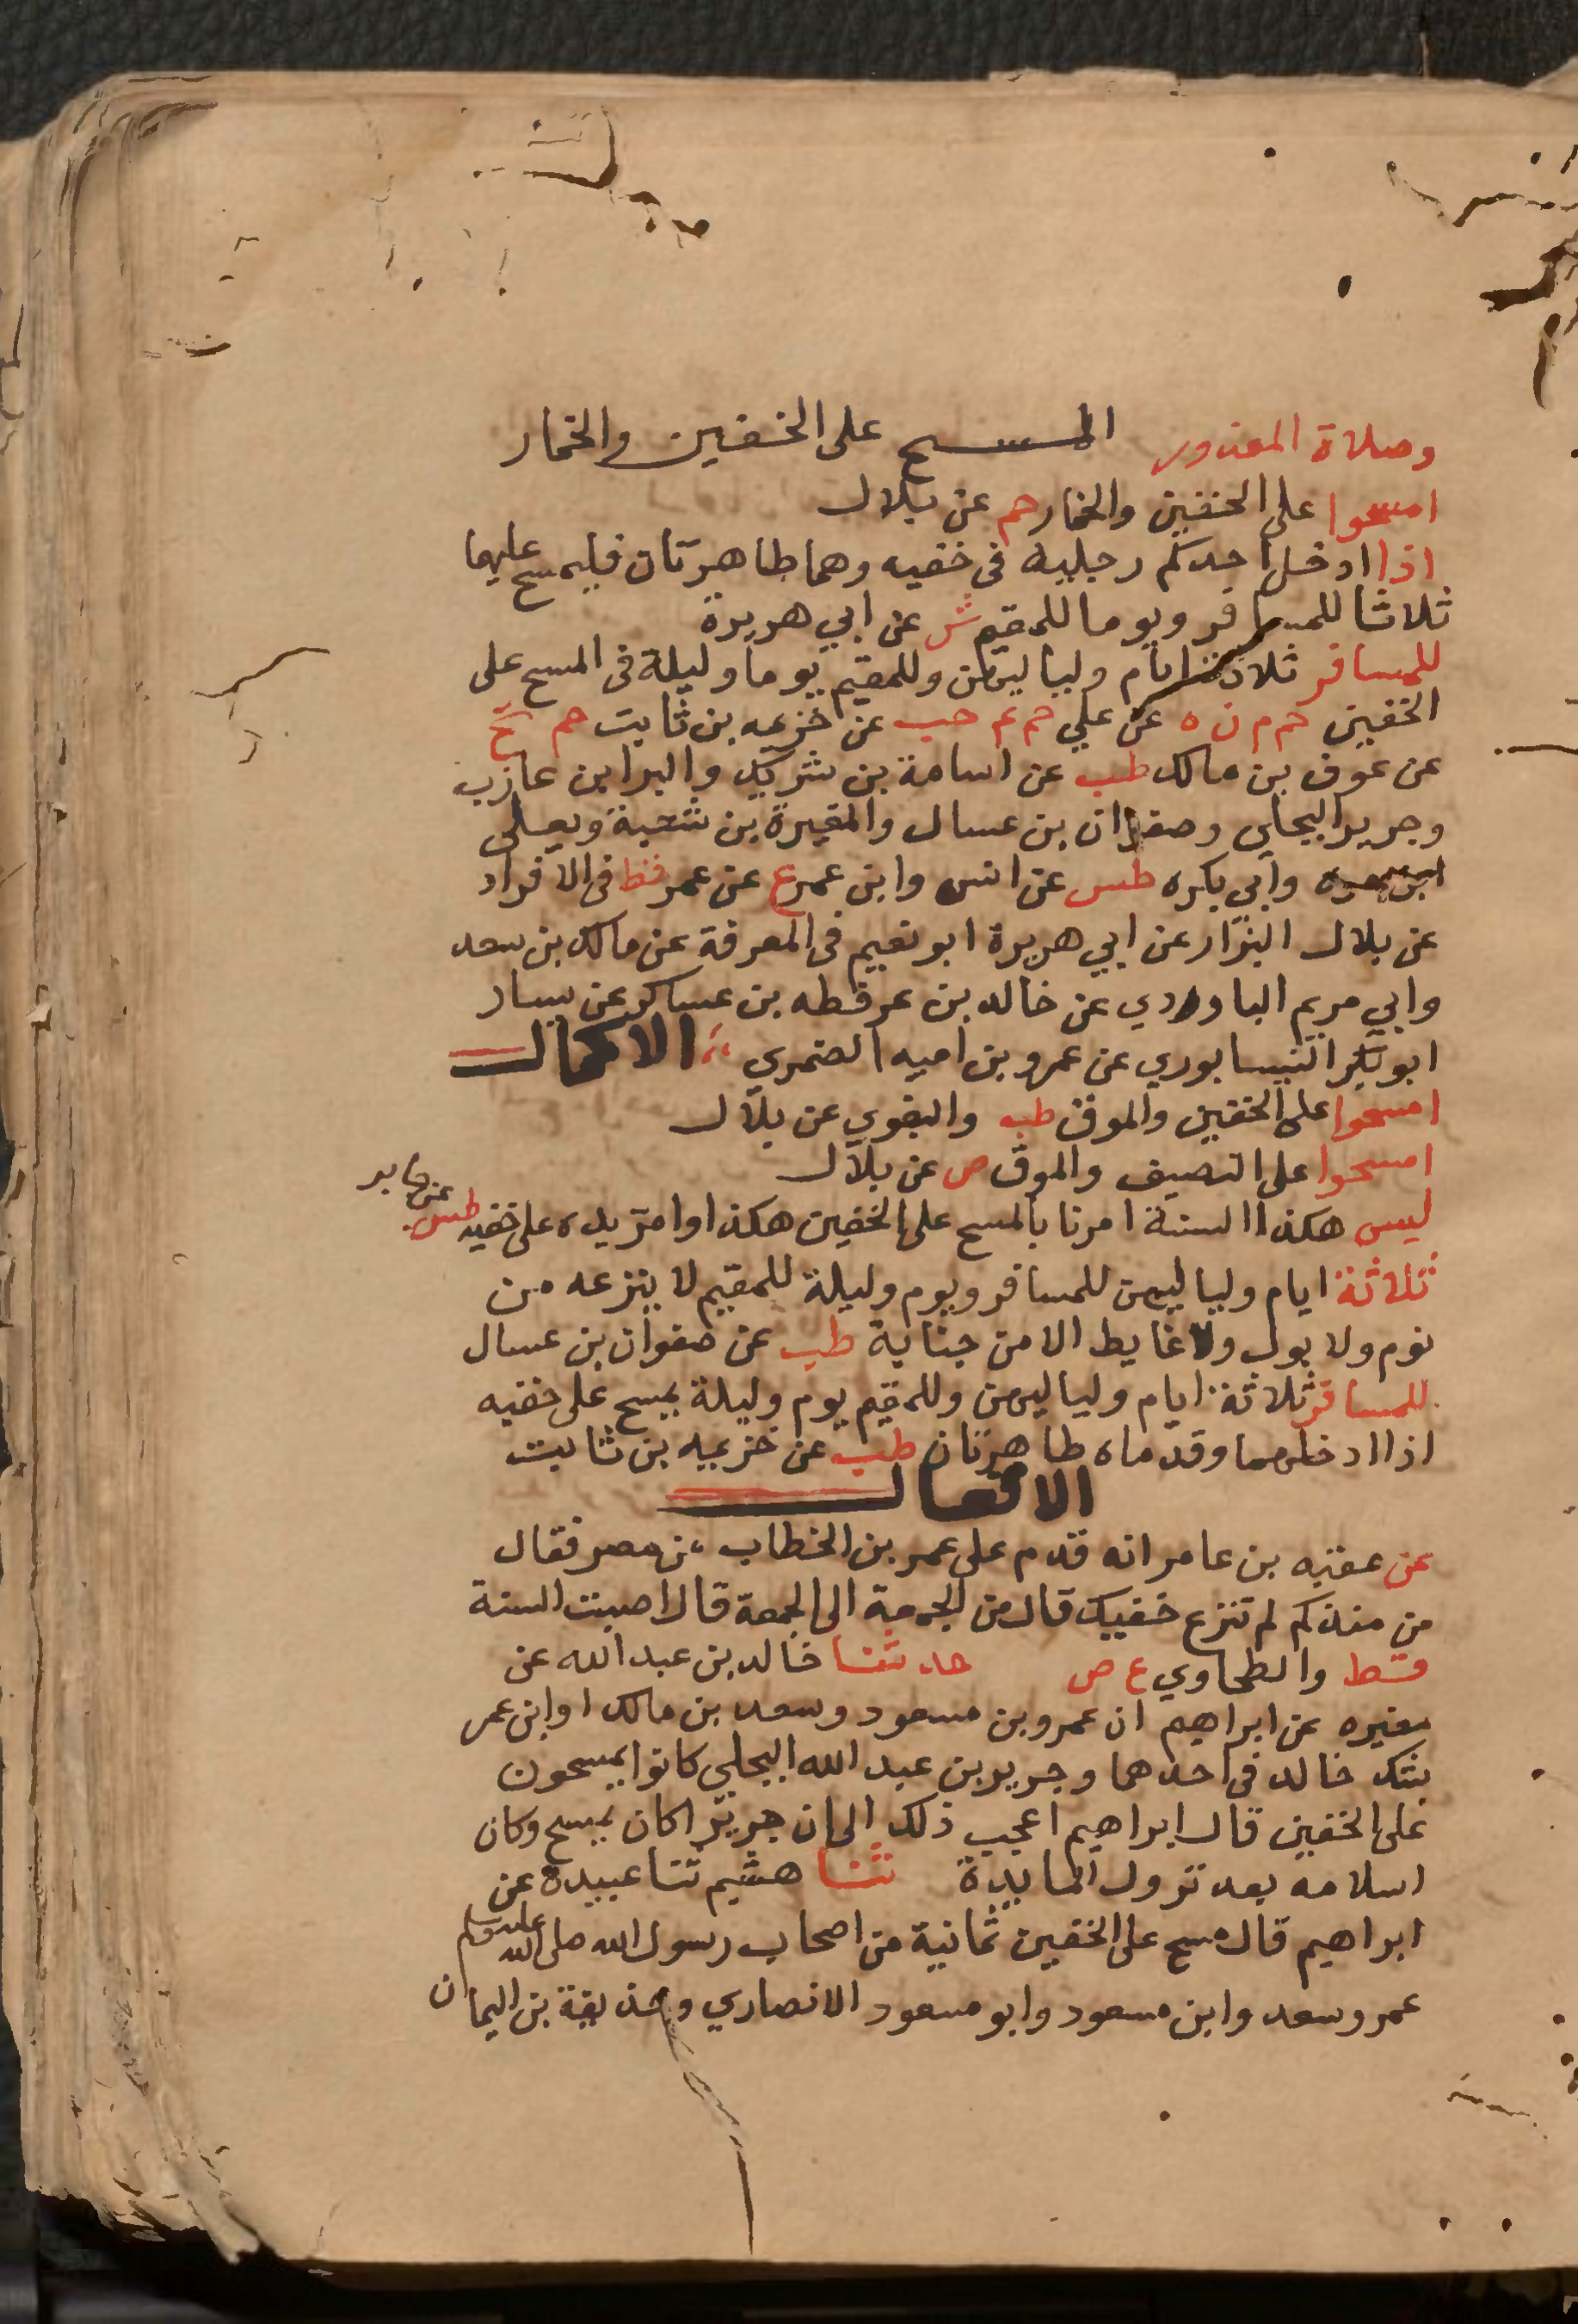 وصلاة المعذور المسح على الخفين والخمار
امسحوا على الخفين والخمار حم عن بلال
اذا ادخل احدكم رجليه فى خفيه وهما طاهرتان فليمسح عليهما
ثلاثا للمسافر ويوما للمقيم ش عن ابي هريرة
للمسافر ثلاثة ايام ولياليهن وللمقيم يوما وليلة فى المسح على
الخفين حم م ن ه عن علي حم عم حب عن خزيمه بن ثابت حم تخ
عن عوف بن مالك طب عن اسامة بن شريك والبرا بن عازب
وجرير البجلي وصفوان بن عسال والمغيرة بن شعبة ويعلى
ابن مره وابي بكره طس عن انس وابن عمر ع عن عمر قط فى الافراد
عن بلال البزار عن ابي هريرة ابو نعيم فى المعرفة عن مالك بن سعد
وابي مريم الباوردي عن خالد بن عرفطه بن عساكر عن يسار
ابو بكر النيسابوري عن عمرو بن اميه الضمري الاكمال
امسحوا على الخفين والموق طب والبغوي عن بلال
امسحوا على النصيف والموق ص عن بلال
ليس هكذا السنة امرنا بالمسح على الخفين هكذا وامر يده على خفيه طس عن جابر
ثلاثة ايام ولياليهن للمسافر ويوم وليلة للمقيم لا ينزعه من
نوم ولا بول ولا غايط الا من جنابة طب عن صفوان بن عسال
للمسافر ثلاثة ايام ولياليهن وللمقيم يوم وليلة يمسح على خفيه
اذا ادخلهما وقدماه طاهرتان طب عن خزيمه بن ثابت
الافعال
عن عقبه بن عامر انه قدم على عمر بن الخطاب من مصر فقال
من منذكم لم تنزع خفيك قال من الجمعة الى الجمعة قال اصبت السنة
قط والطحاوي ع ص حدثنا خالد بن عبد الله عن
مغيره عن ابراهيم ان عمرو بن مسعود وسعد بن مالك او ابن عمر
يشك خالد فى احدهما وجرير بن عبد الله البجلي كانوا يمسحون
على الخفين قال ابراهيم اعجب ذلك الى ان جريرا كان يمسح وكان
اسلامه بعد نزول المايدة ثنا هشيم ثنا عبيدة عن
ابراهيم قال مسح على الخفين ثمانية من اصحاب رسول الله صلى الله عليه وسلم
عمر وسعد وابن مسعود وابو مسعود الانصاري وحذيفة بن اليمان